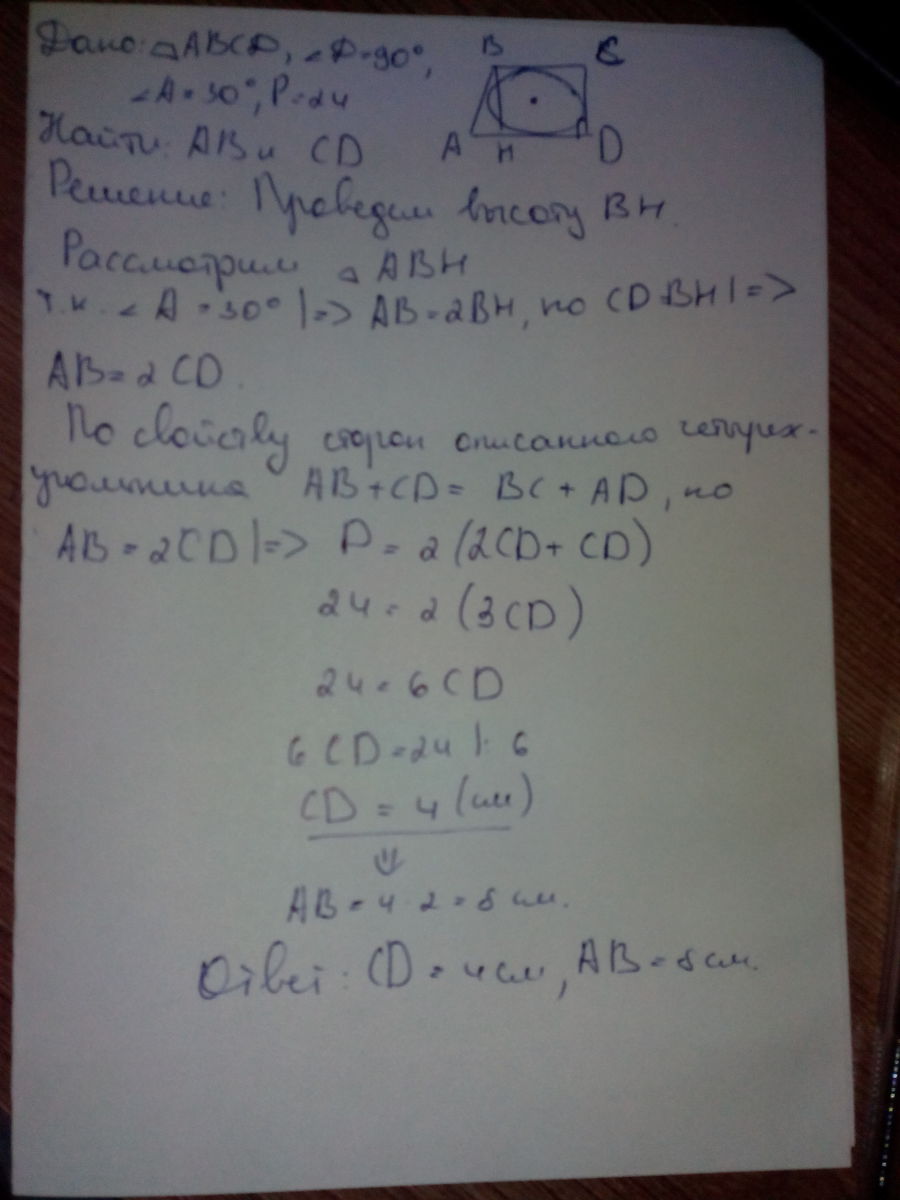 Дано: ▱ABCD, ∠D=90°,
∠A=30°, P=24
Найти: AB и CD
B C
A H D
Решение: Проведем высоту BH.
Рассмотрим △ ABH
т.к. ∠A=30° |=> AB=2BH, но CD=BH |=>
AB=2CD.
По свойству сторон описанного четырех-
угольника AB+CD= BC+AD, но
AB=2CD |=> P=2(2CD+CD)
24=2(3CD)
24=6CD
6CD=24 |:6
CD=4(см)
⇓
AB=4·2=8см.
Ответ: CD=4см, AB=8см.